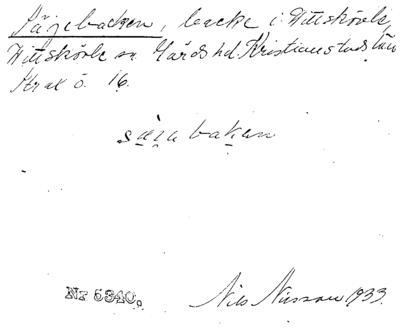 Säjebacken, backe i Vittskövle,
Vittskövle sn Gärds hd. Kristianstads län
Strax ö. 16.
säjabakan
Nr 5340.
Nils Nilsson 1933.